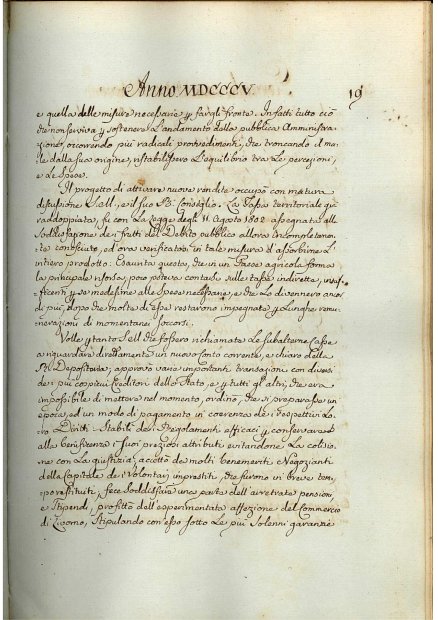 Anno MDCCCV. 19
e quella delle misure necessarie p fargli fronte. Infatti tutto ciò
che non serviva p sostenere l'andamento della pubblica Amministra-
zione, occorrendo più radicali provvedimenti, che troncando il ma-
le dalla sua origine, ristabilissero l'equilibrio tra le percezioni,
e le Spese.
Il progetto di attivare nuove rendite occupò con matura
discussione S. M., e il suo R. Consiglio. La Tassa territoriale già
raddoppiata, fu con la Legge degli 11 Agosto 1802 assegnata alla
Soddisfazione dei frutti del Debito pubblico allora incompletamen-
te conosciuto, ed ora verificato in tale misura d'assorbirne l'
intiero prodotto. Esaurita questa, che in un Paese agricola forma
la principale risorsa, poco poteva contarsi sulle tasse indirette, insuf-
ficenti p se medesime alle Spese necessarie, e che lo divennero anco
di più, dopo che molte di esse restarono impegnate p lunghe remu-
nerazioni di momentanei soccorsi.
Volle p tanto S. M. che fossero richiamate le subalterne Casse
a riguardare direttamente in nuovo Conto corrente, e chiaro della
R. Depositeria, approvò varie importanti transazioni con diversi
de i più cospicui Creditori dello Stato, e p tutti gli altri, che era
impossibile di mettere nel momento, ordinò, che si preparasse un
epoca, ed un modo di pagamento in coerenza de i respettivi lo-
ro Diritti. Stabilì dei Regolamenti efficaci p conservare
alla beneficenza i suoi preziosi attributi evitandone la colisio-
ne con la giustizia, accettò da molti benemeriti Negozianti
della Capitale de i volontari imprestiti, che furono in breve tem-
po restituiti, fece soddisfare una parte dell'arretrate pensioni,
e Stipendi, profittò dell'esperimentata affezione del Commercio
di Livorno, stipulando con esso sotto le più solenni garanzie